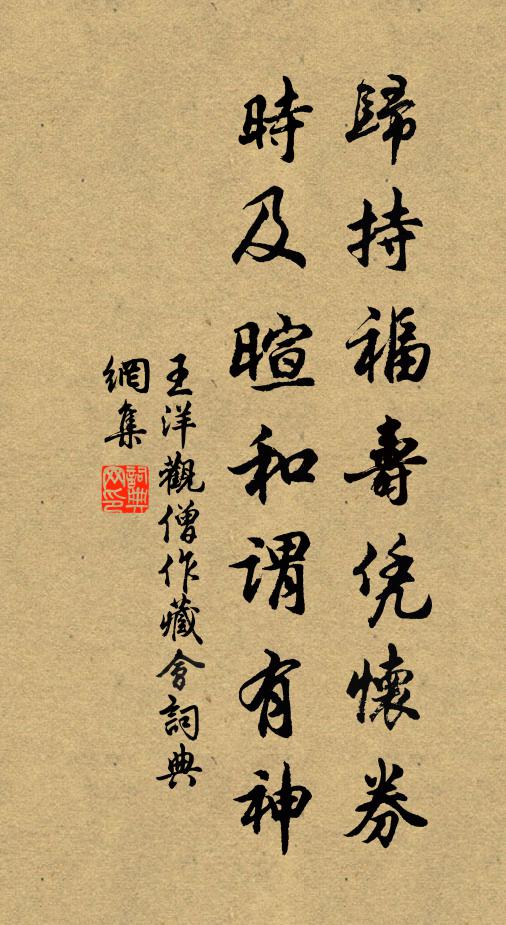 歸持福壽凭懷券
時及暄和謂有神
王洋觀僧作藏會詞典
網集
詞典網印